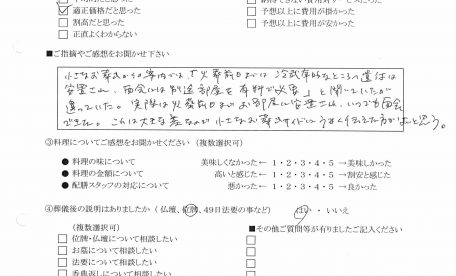 適正価格だと思った
割高だと思った
正直よくわからない
予想以上に費用が掛かった
予想以上に費用が安かった
■ご指摘やご感想をお聞かせ下さい
小さなお葬式からの案内では「火葬前日までは冷蔵庫的なところへ遺体は
安置され、面会には別途部屋を有料で必要」と聞いていたが
違っていた。実際は火葬前日までお部屋に安置され、いつでも面会
できた。これは大きな差なので小さなお葬式サイドにうまく伝えた方がよいと思う。
③料理についてご感想をお聞かせください（複数選択可）
● 料理の味について 美味しくなかった← 1・2・3・4・5 →美味しかった
● 料理の金額について 高いと感じた← 1・2・3・4・5 →割安と感じた
● 配膳スタッフの対応について 悪かった← 1・2・3・4・5 →良かった
④葬儀後の説明はありましたか（仏壇、位牌、49日法要の事など） はい ・ いいえ
（複数選択可） ■その他ご質問等が有りましたご記入ください
位牌・仏壇について相談したい
お墓について相談したい
法要について相談したい
香典返しについて相談したい